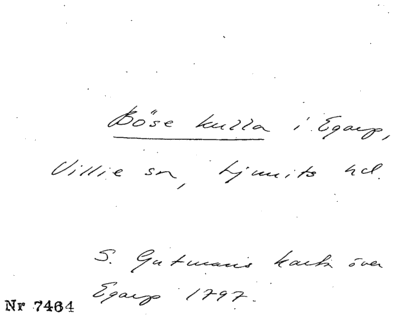 Böse kulla i Egarp,
Villie sn, Ljunits hd.
S. Gutmans karta över
Egarp 1797.
Nr 7464